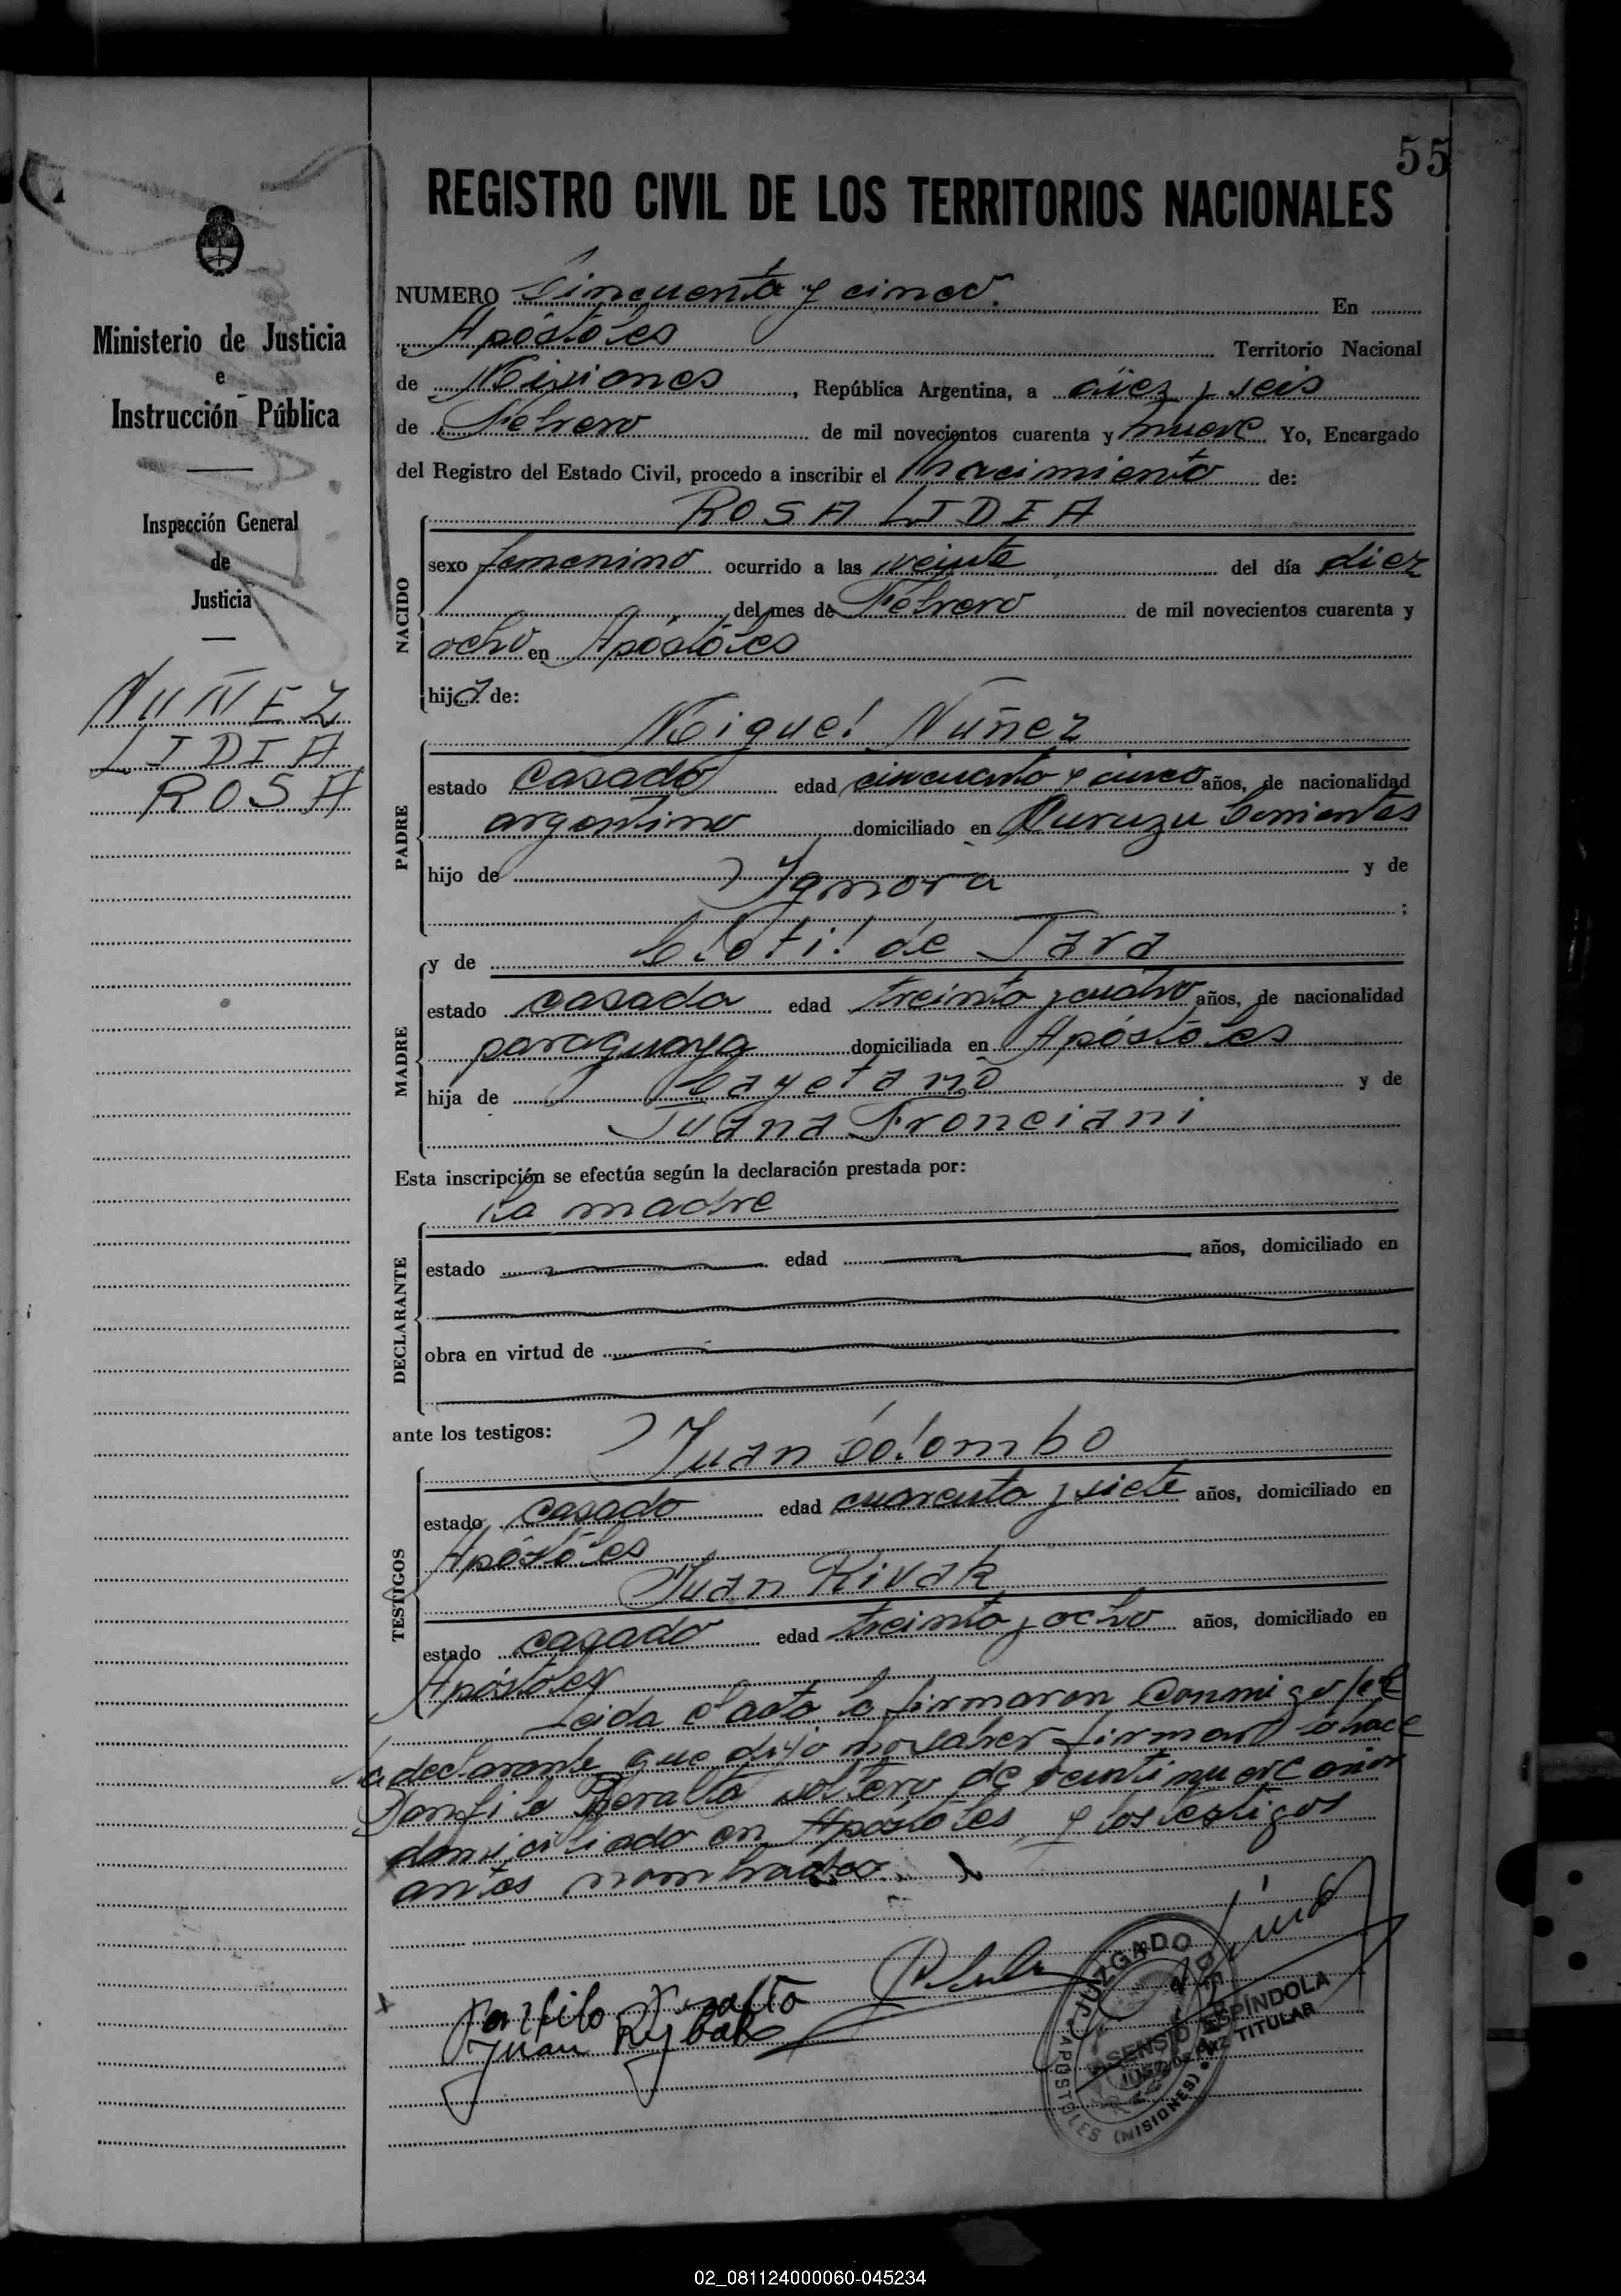 55
REGISTRO CIVIL DE LOS TERRITORIOS NACIONALES
Ministerio de Justicia
e
Instrucción Pública
Inspección General
de
Justicia
NUÑEZ
LIDIA
ROSA
NUMERO Cincuenta y cinco. En
Apóstoles Territorio Nacional
de Misiones, República Argentina, a diez y seis
de Febrero de mil novecientos cuarenta y nueve Yo, Encargado
del Registro del Estado Civil, procedo a inscribir el nacimiento de:
ROSA LIDIA
NACIDO
sexo femenino ocurrido a las veinte del día diez
del mes de Febrero de mil novecientos cuarenta y
ocho en Apóstoles
hija de:
Miguel Nuñez
PADRE
estado Casado edad cincuenta y cinco años, de nacionalidad
argentino domiciliado en Curuzu Corrientes
hijo de Ignora y de
;
y de Clotilde Jara
MADRE
estado casada edad treinta y cuatro años, de nacionalidad
paraguaya domiciliada en Apóstoles
hija de Cayetano y de
Juana Fronciani
Esta inscripción se efectúa según la declaración prestada por:
La madre
DECLARANTE
estado edad años, domiciliado en
obra en virtud de
ante los testigos: Juan Colombo
TESTIGOS
estado casado edad cuarenta y siete años, domiciliado en
Apóstoles
Juan Rivak
estado casado edad treinta y ocho años, domiciliado en
Apóstoles
Leida el acta la firmaron conmigo por
la declarante que dijo no saber firmar lo hace
Panfilo Peralta soltero de veintinueve años
domiciliado en Apóstoles y los testigos
antes nombrados.
Panfilo Peralta
Juan Rybak
JUZGADO DE PAZ
APOSTOLES (MISIONES)
ASENSIO ESPÍNDOLA
JUEZ DE PAZ TITULAR
02_081124000060-045234